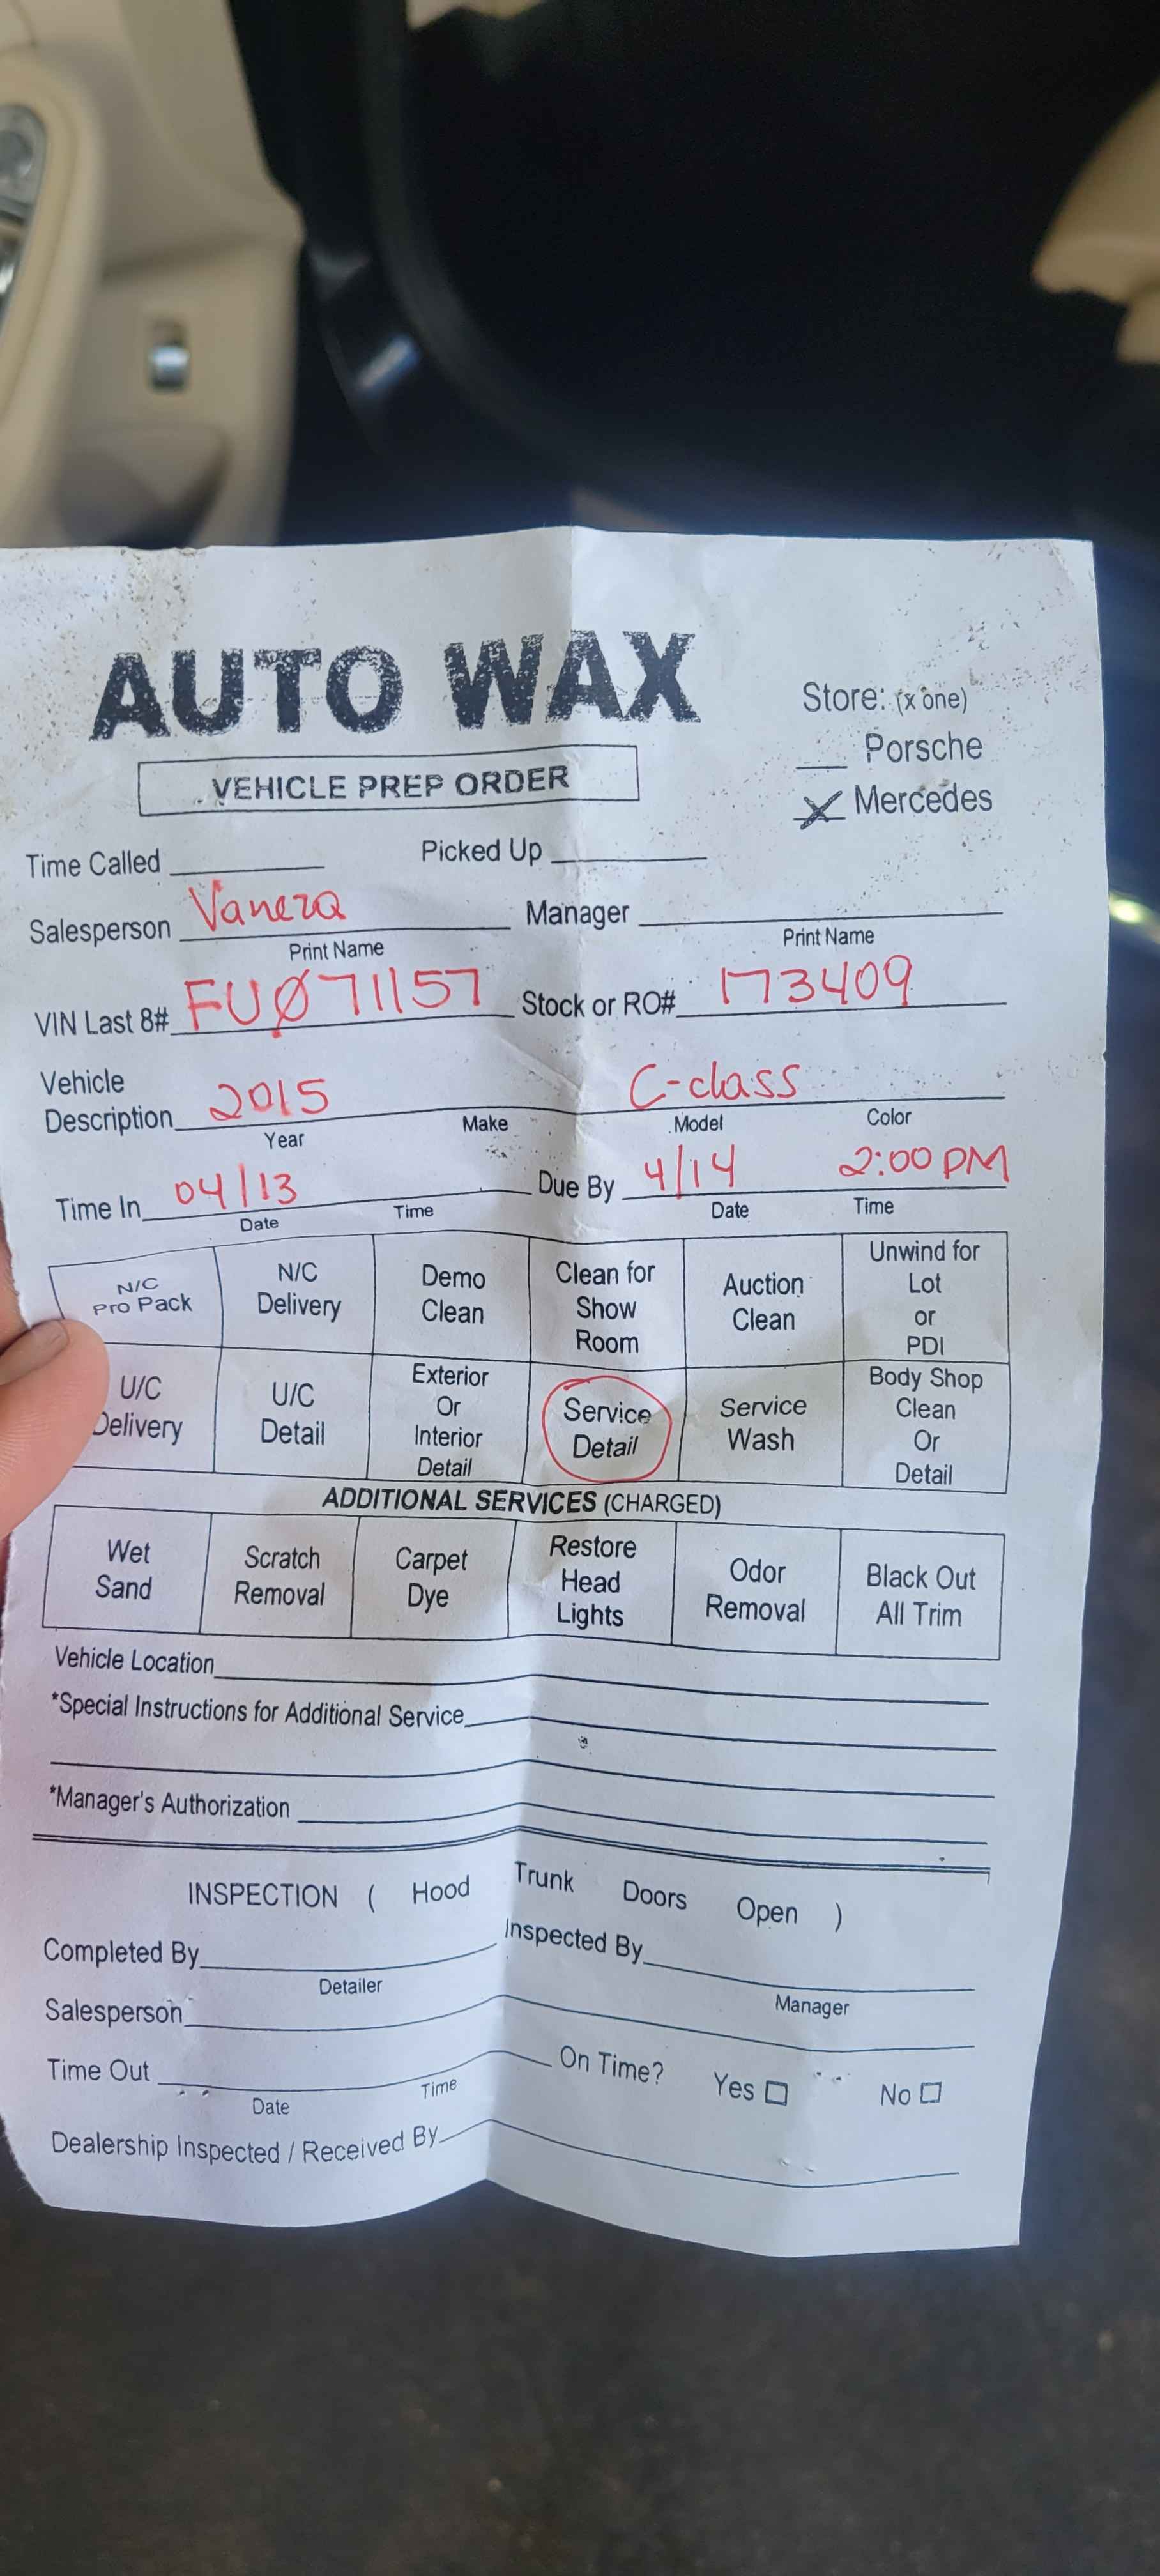 AUTO WAX
Store: (x one)
Porsche
VEHICLE PREP ORDER
X Mercedes
Time Called Picked Up
Salesperson Vaneza Manager
Print Name Print Name
VIN Last 8# FU071157 Stock or RO# 173409
Vehicle
Description 2015 C-class
Year Make Model Color
Time In 04/13 Due By 4/14 2:00 PM
Date Time Date Time
N/C Pro Pack
N/C Delivery
Demo Clean
Clean for Show Room
Auction Clean
Unwind for Lot or PDI
U/C Delivery
U/C Detail
Exterior Or Interior Detail
Service Detail
Service Wash
Body Shop Clean Or Detail
ADDITIONAL SERVICES (CHARGED)
Wet Sand
Scratch Removal
Carpet Dye
Restore Head Lights
Odor Removal
Black Out All Trim
Vehicle Location
*Special Instructions for Additional Service
*Manager's Authorization
INSPECTION ( Hood Trunk Doors Open )
Completed By Inspected By
Detailer Manager
Salesperson
Time Out On Time? Yes No
Date Time
Dealership Inspected / Received By